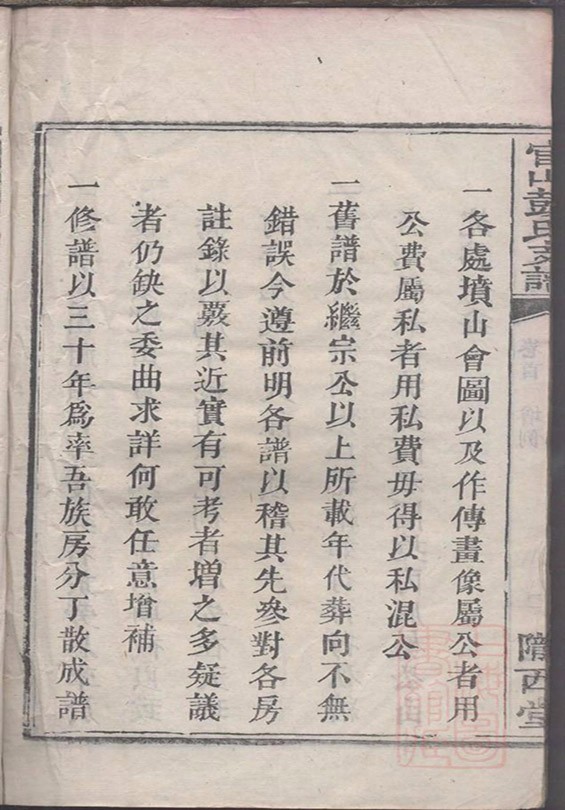 官山彭氏支譜
隴西堂
一各處墳山會圖以及作傳畫像屬公者用
公費屬私者用私費毋得以私混公
一舊譜於繼宗公以上所載年代葬向不無
錯誤今遵前明各譜以稽其先參對各房
註錄以覈其近實有可考者增之多疑議
者仍缺之委曲求詳何敢任意增補
一修譜以三十年爲率吾族房分丁散成譜